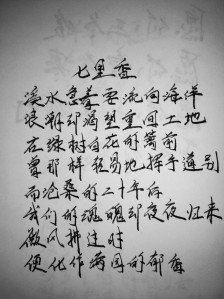 七里香
溪水急着要流向海洋
浪潮却渴望重回土地
在绿树白花的篱前
曾那样轻易地挥手道别
而沧桑的二十年后
我们的魂魄却夜夜归来
微风拂过时
便化作满园的郁香